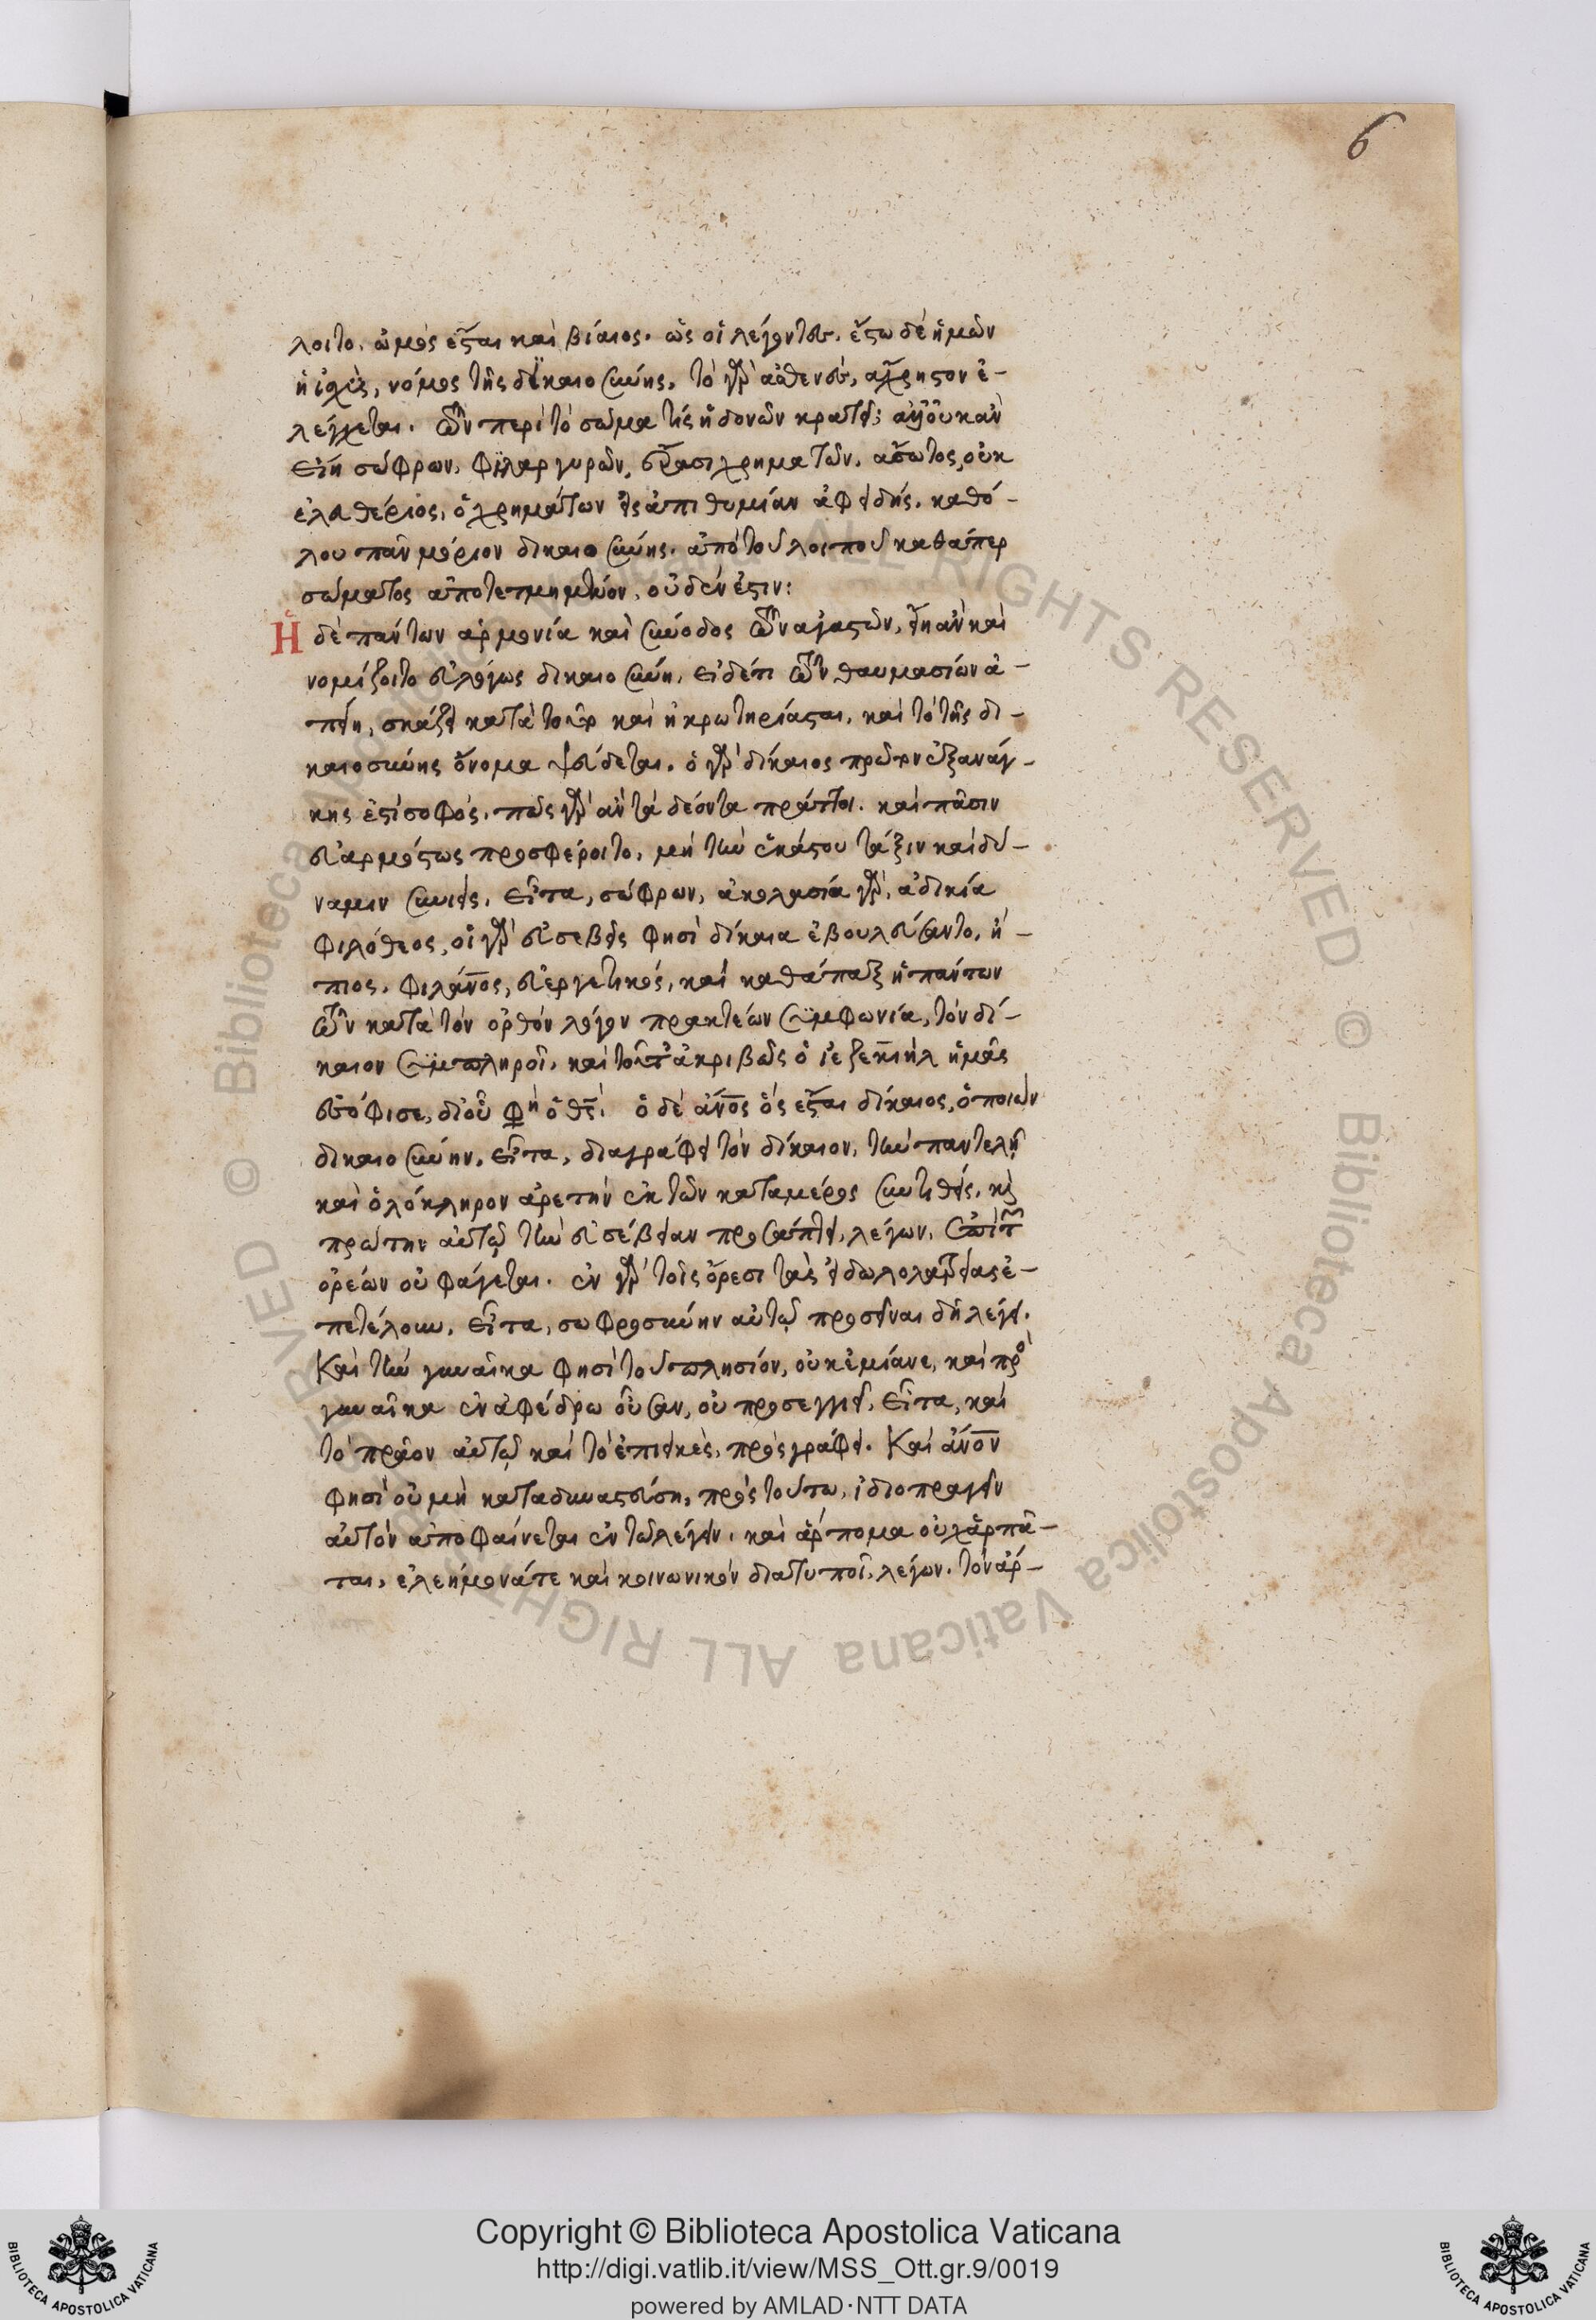 6
λοιτο. ὠμὸς ἔσται καὶ βίαιος. ὡς οἱ λέγοντες. ἔστω δὲ ἡμῶν
ἡ ἰσχὺς, νόμος τῆς δικαιοσύνης, τὸ γὰρ ἀσθενὲς, ἄχρηστον ἐ-
λέγχεται. τῶν περὶ τὸ σῶμα τίς ἡδονῶν κρατεῖ; οὐκ ἂν
εἴη σώφρων, φιλαργυρῶν, χρημάτων, ἄσωτος, οὐκ
ἐλευθέριος, ὁ χρημάτων εἰς ἐπιθυμίαν ἀφειδής. καθό-
λου πᾶν μόριον δικαιοσύνης. ἀπὸ τοῦ λοιποῦ καθάπερ
σώματος ἀποτετμημένον, οὐδέν ἐστιν:
Ἡ δὲ πάντων ἁρμονία καὶ σύνοδος τῶν ἀγαστῶν, εἴη ἂν καὶ
νομίζοιτο εὐλόγως δικαιοσύνη, εἰ δέ τι τῶν θαυμασίων ἀ-
πείη, σκάζει κατὰ τοῦτο καὶ ἠκρωτηρίασται, καὶ τὸ τῆς δι-
καιοσύνης ὄνομα ψεύδεται. ὁ γὰρ δίκαιος πρῶτον ἐξ ἀνάγ-
κης ἐστὶ σοφός, πῶς γὰρ ἂν τὰ δέοντα πράττοι. καὶ πᾶσιν
εὐαρμόστως προσφέροιτο, μὴ τὴν ἑκάστου τάξιν καὶ δύ-
ναμιν συνιείς, εἶτα, σώφρων, ἀκολασία γὰρ, ἀδικία
φιλόθεος, οἱ γὰρ εὐσεβεῖς φησὶ δίκαια ἐβουλεύσαντο, ἤ-
πιος. φιλάνος, εὐεργετικός, καὶ καθάπαξ ἡ πάντων
τῶν κατὰ τὸν ὀρθὸν λόγον πρακτέων συμφωνία, τὸν δί-
καιον συμπληροῖ, καὶ τοῦτ' ἀκριβῶς ὁ ἰεζεκιὴλ ἡμᾶς
ἐσόφισε, δι' οὗ φη ὁ θς. ὁ δὲ ἄνος ὃς ἔσται δίκαιος, ὁ ποιῶν
δικαιοσύνην, εἶτα, διαγράφει τὸν δίκαιον, τὴν παντελῆ
καὶ ὁλόκληρον ἀρετὴν ἐκ τῶν καταμέρος συντιθείς, κ
πρώτην αὐτῷ τὴν εὐσέβειαν προσάπτει, λέγων. ἐπὶ τῶν
ὀρέων οὐ φάγεται. ἐν γὰρ τοῖς ὄρεσι τὰς εἰδωλολατρείας ἐ-
πετέλουν, εἶτα, σωφροσύνην αὐτῷ προσεῖναι δὴ λέγει.
Καὶ τὴν γυναῖκα φησὶ τοῦ πλησίον, οὐκ ἐμίανε, καὶ πρὸ
γυναῖκα ἐν ἀφέδρω οὖσαν, οὐ προσεγγιεῖ, εἶτα, καὶ
τὸ πρᾶον αὐτῷ καὶ τὸ ἐπιεικὲς, προσγράφει. Καὶ ἄνον
φησὶ οὐ μὴ καταδυναστεύση, πρὸς τούτω, ἰδιοπραγεῖν
αὐτὸν ἀποφαίνεται ἐν τῶ λέγειν. καὶ ἅρπαγμα οὐχ ἁρπᾶ-
ται, ἐλεήμονά τε καὶ κοινωνικὸν διατυποῖ, λέγων. τὸν ἄρ-
© Biblioteca Apostolica Vaticana ALL RIGHTS RESERVED © Biblioteca Apostolica Vaticana ALL RIGHTS RESERVED
Copyright © Biblioteca Apostolica Vaticana
http://digi.vatlib.it/view/MSS_Ott.gr.9/0019
powered by AMLAD·NTT DATA
BIBLIOTECA APOSTOLICA VATICANA
BIBLIOTECA APOSTOLICA VATICANA